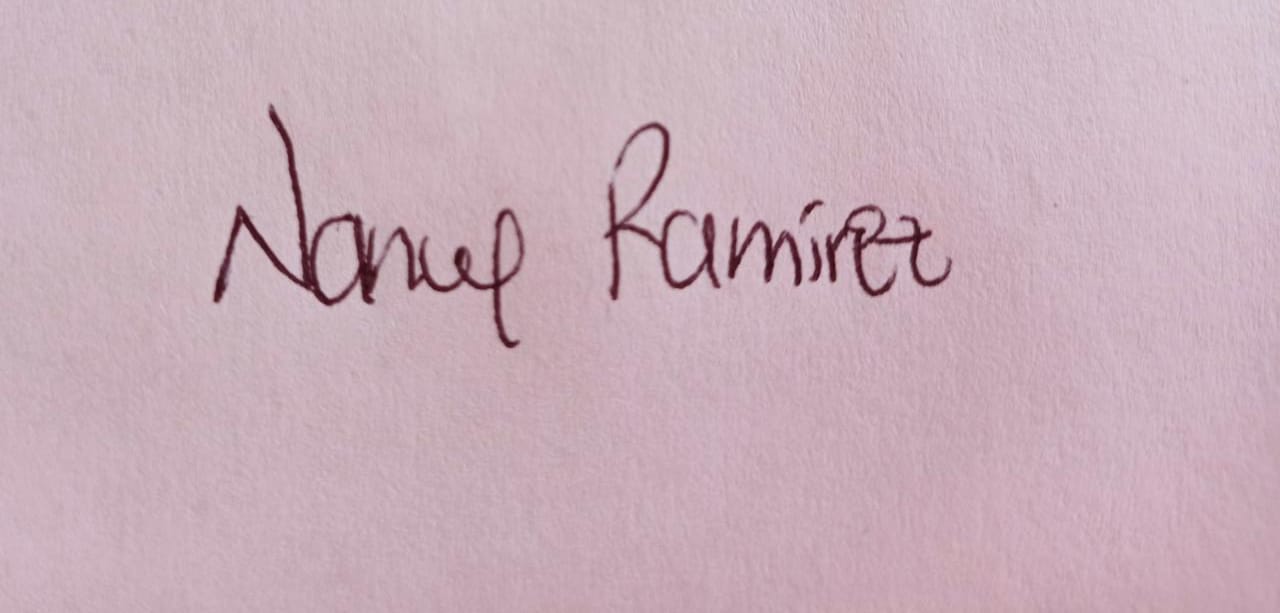 Nancy Ramirez